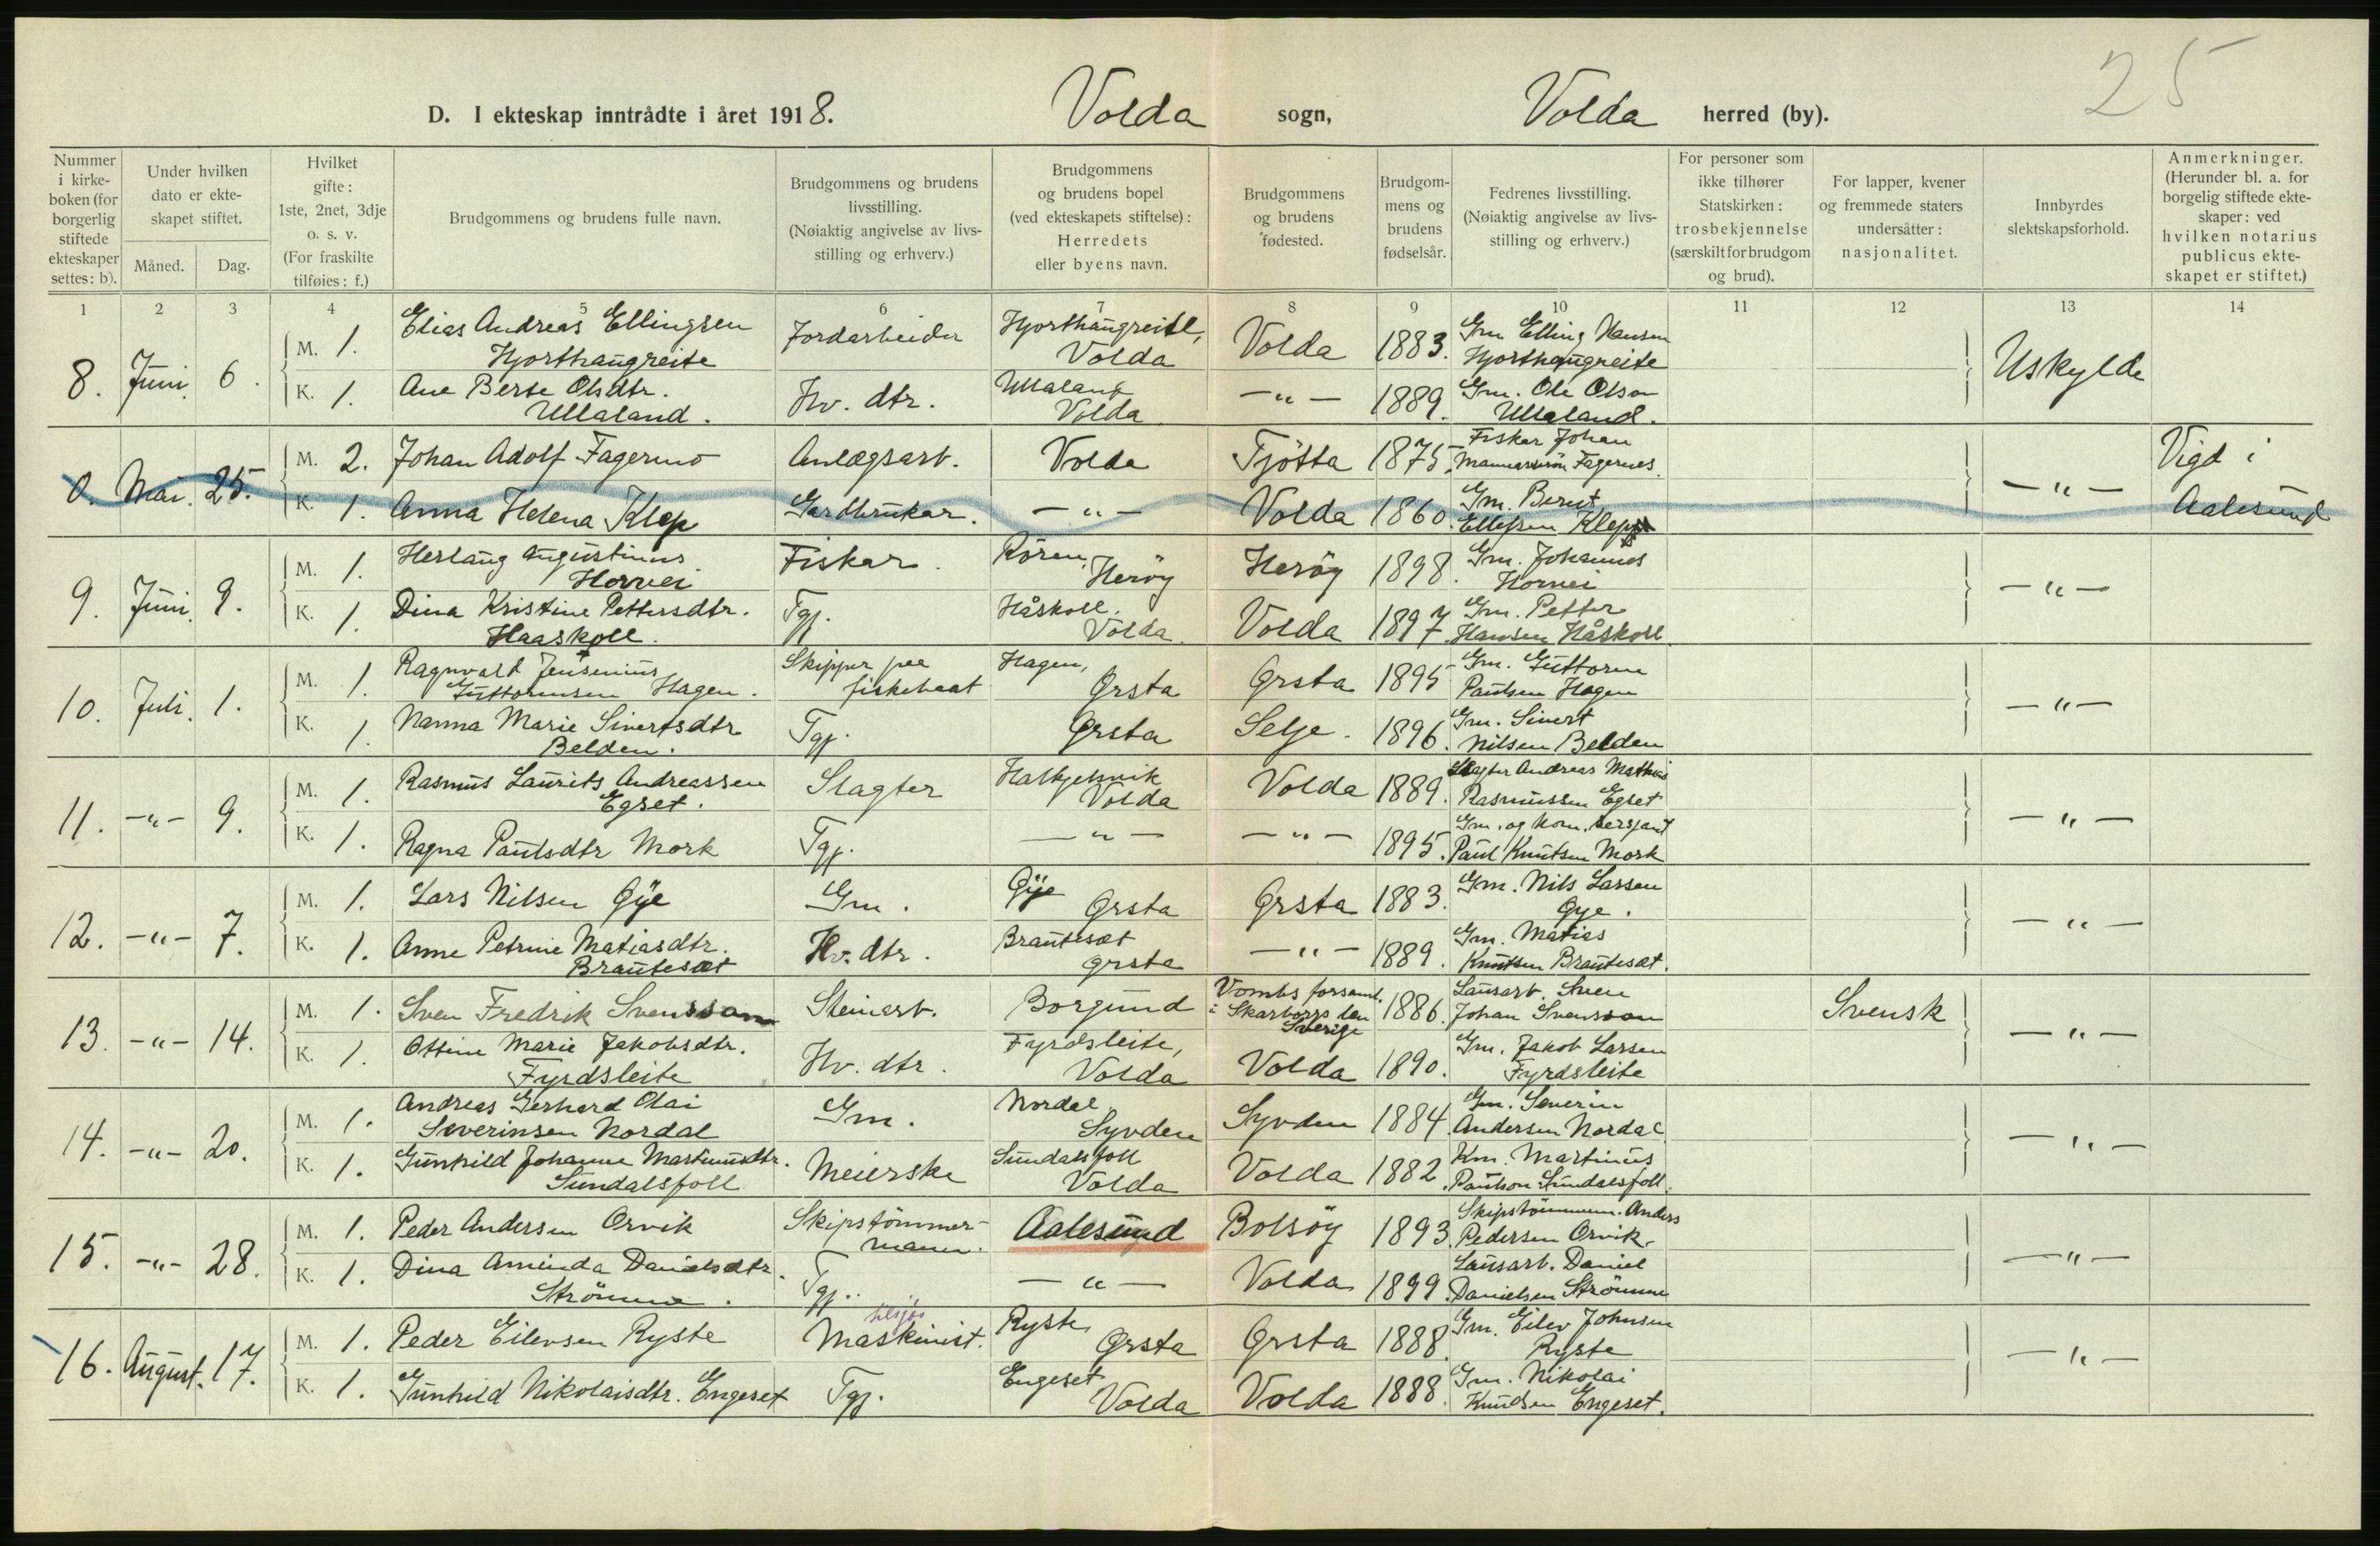 25
D. I ekteskap inntrådte i året 1918. Volda sogn, Volda herred (by).
Nummer i kirke- boken (for borgerlig stiftede ekteskaper settes: b).
Under hvilken dato er ekte- skapet stiftet.
Måned. Dag.
Hvilket gifte: 1ste, 2net, 3dje o. s. v. (For fraskilte tilføies: f.)
Brudgommens og brudens fulle navn.
Brudgommens og brudens livsstilling. (Nøiaktig angivelse av livs- stilling og erhverv.)
Brudgommens og brudens bopel (ved ekteskapets stiftelse): Herredets eller byens navn.
Brudgommens og brudens fødested.
Brudgom- mens og brudens fødselsår.
Fedrenes livsstilling. (Nøiaktig angivelse av livs- stilling og erhverv.)
For personer som ikke tilhører Statskirken: trosbekjennelse (særskilt for brudgom og brud).
For lapper, kvener og fremmede staters undersåtter: nasjonalitet.
Innbyrdes slektskapsforhold.
Anmerkninger. (Herunder bl. a. for borgelig stiftede ekte- skaper: ved hvilken notarius publicus ekte- skapet er stiftet.)
1 2 3 4 5 6 7 8 9 10 11 12 13 14
8. Juni 6.
M. 1. Elias Andreas Ellingsen Hjorthaugreite Jordarbeider Hjorthaugreitl, Volda Volda 1883. Gm Elling Hansen Hjorthaugreite
Uskylde
K. 1. Ane Berte Olsdtr. Ullaland. Hv. dtr. Ullaland Volda —"— 1889. Gm. Ole Olson Ullaland.
0. Mai. 25.
M. 2. Johan Adolf Fagermo Anlægsarb. Volda Tjötta 1875. Fiskar Johan Fagernes
—"— Vigd i Aalesund
K. 1. Anna Helena Klep Gardbrukar. —"— Volda 1860. Gm. Bernt Ellefsen Klepp
9. Juni. 9.
M. 1. Herlaug Augustinus Hornei Fiskar. Rören, Heröy Heröy 1898. Gm. Johannes Hornei
—"—
K. 1. Dina Kristine Pettersdtr. Haaskoll. Tgj. Håskoll. Volda. Volda 1897. Gm. Petter Hansen Håskoll
10. Juli. 1.
M. 1. Ragnvald Jensenius Guttormsen Hagen. Skipper paa fiskebaat Hagen, Ørsta Ørsta 1895 Gm. Guttorm Paulsen Hagen
—"—
K. 1. Nanna Marie Sivertsdtr Belden. Tgj. Ørsta Selje. 1896. Gm. Sivert Nilsen Belden
11. —"— 9.
M. 1. Rasmus Laurits Andreassen Egset. Slagter Halkjelsvik Volda Volda 1889. Slagter Andreas Mathias Rasmussen Egset
—"—
K. 1. Ragna Paulsdtr Mork Tgj. —"— —"— 1895. Gm. og kom. sersjant Paul Knutsen Mork
12. —"— 7.
M. 1. Lars Nilsen Øye Gm. Øye Ørsta Ørsta 1883. Gm. Nils Larsen Øye.
—"—
K. 1. Anne Petrine Matiasdtr. Brautesæt Hv. dtr. Brautesæt Ørsta —"— 1889. Gm. Matias Knutsen Brautesæt.
13. —"— 14.
M. 1. Sven Fredrik Svensson Steinarb. Borgund Vombs forsaml. i Skarborgs len Sverige 1886. Lausarb. Sven Johan Svensson Svensk
—"—
K. 1. Ottine Marie Jakobsdtr. Fyrdsleite Hv. dtr. Fyrdsleite, Volda Volda 1890. Gm. Jakob Larsen Fyrdsleite
14. —"— 20.
M. 1. Andreas Gerhard Olai Severinsen Nordal Gm. Nordal Syvden Syvden 1884. Gm. Severin Andersen Nordal
—"—
K. 1. Gunhild Johanne Martinusdtr. Sundalsfoll Meierske Sundalsfoll Volda Volda 1882. Km. Martinus Paulson Sundalsfoll.
15. —"— 28.
M. 1. Peder Andersen Orvik Skipstömmer- mann. Aalesund Bolsöy 1893. Skipstömmerm. Anders Pedersen Orvik.
—"—
K. 1. Dina Aminda Danielsdtr. Strömme. Tgj. —"— Volda 1899. Lausarb. Daniel Danielsen Strömme
16. August. 17.
M. 1. Peder Eilevsen Ryste tilsjøs Maskinist. Ryste, Ørsta Ørsta 1888. Gm. Eilev Johnsen Ryste
—"—
K. 1. Gunhild Nikolaisdtr. Engeset Tgj. Engeset Volda Volda 1888. Gm. Nikolai Knudsen Engeset.